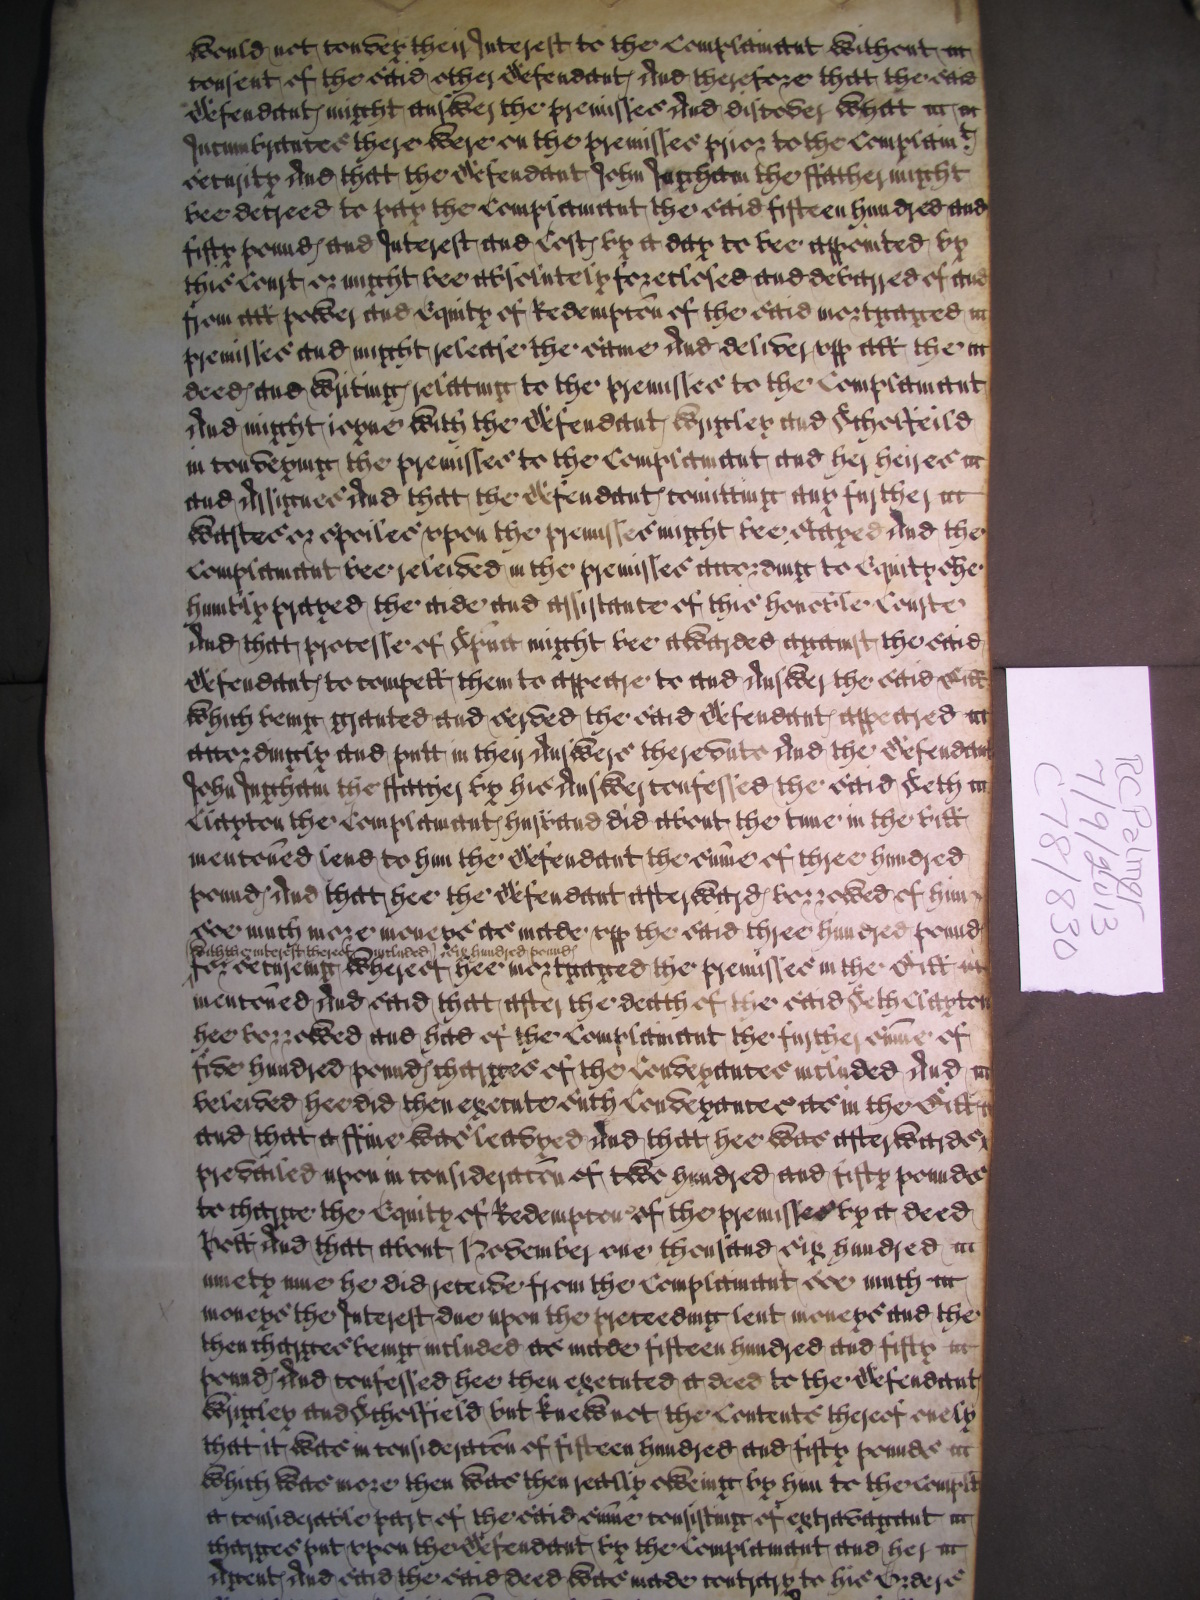 would not convey their Interest to the Complainant without
consent of the said other Defendant And therefore that the said
Defendant might answer the premisses And discover what
Incumbrances there were on the premisses prior to the Complain:ts
security And that the Defendant John Ingham the ffather might
bee decreed to pay the Complainant the said fifteen hundred and
fifty pound and Interest and Cost by a day to bee appointed by
this Court or might bee absolutely foreclosed and debarred of and
from all power and Equity of Redempcon of the said mortgaged
premisses and might release the same And deliver upp all the
deed and writing relating to the premisses to the Complainant
And might joyne with the Defendant Wrigley and Scholfeild
in conveying the premisses to the Complainant and her heires
and Assignes And that the Defendant comitting any further
wastes or spoiles upon the premisses might bee stayed And the
Complainant bee releived in the premisses according to Equity she
humbly prayed the aide and assistance of this honoble Courte
And that processe of Spena might bee awarded against the said
Defendant to compell them to appeare to and Answer the said Bill
which being granted and served the said Defendant appeared
accordingly and putt in their Answers thereunto And the Defendant
John Ingham the ffather by his Answer confessed the said Seth
Clayton the Complainant husband did about the time in the bill
mentoned lend to him the Defendant the sume of three hundred
pound And that hee the Defendant afterward borrowed of him
soe much more moneys as made upp the said three hundred pound
with the interest thereof included six hundred pound
for secureing whereof hee mortgaged the premisses in the Bill
mentoned And said that after the death of the said Seth Clayton
hee borrowed and had of the Complainant the further sume of
five hundred pound charges of the Conveyances included And
beleived hee did then execute such Conveyances as in the Bill
and that a ffine was leavyed And that hee was afterwards
prevailed upon in consideracon of two hundred and fifty pounds
to charge the Equity of Redempcon of the premisses by a deed
Poll And that about November one thousand six hundred
ninety nine he did receive from the Complainant soe much
moneys the Interest due upon the preceeding lent moneys and the
then charges being included as made fifteen hundred and fifty
pound And confessed hee then executed a deed to the Defendant
Wrigley and Scholfield but knew not the Contents thereof onely
that it was in consideracon of fifteen hundred and fifty pounds
which was more then was then really oweing by him to the Complt
a considerable part of the said sume consisting of extravagant
charges put upon the Defendant by the Complainant and her
Agent And said the said deed was made contrary to his Orders
RCPalmer
7/9/2013
C78/830